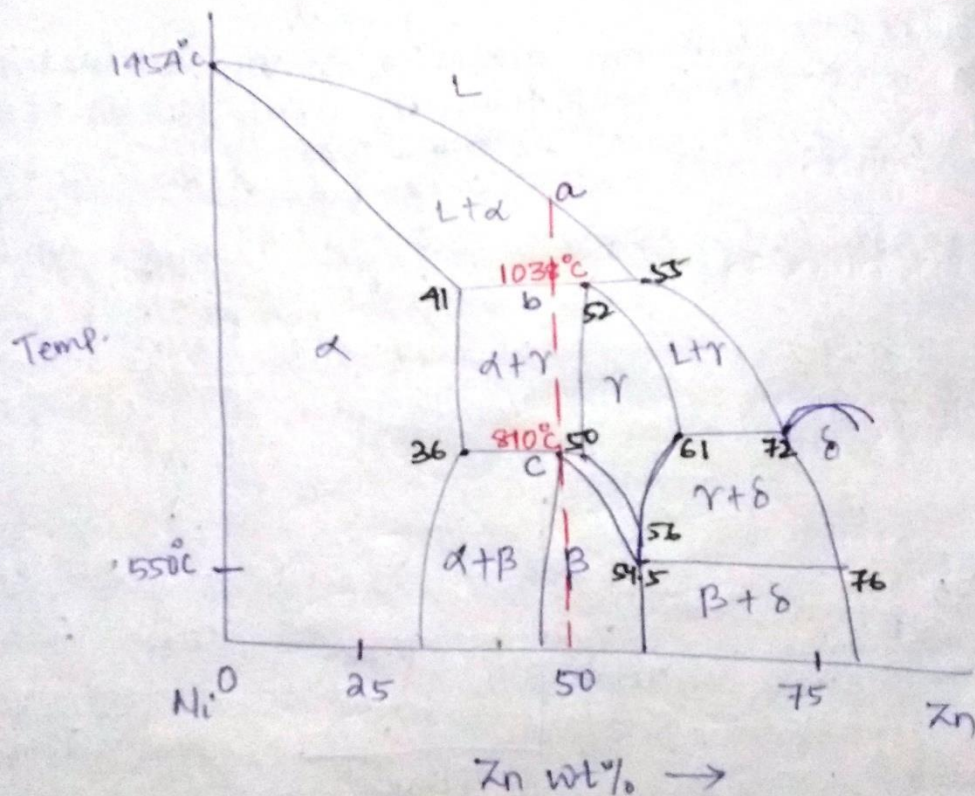 1454°C
L
a
L+α
1038°C
55
41
b
52
Temp.
α
α+γ
γ
L+γ
810°C
50
36
C
61
72
δ
γ+δ
56
550°C
α+β
β
54.5
76
β+δ
0
25
50
75
Ni
Zn
Zn wt% →